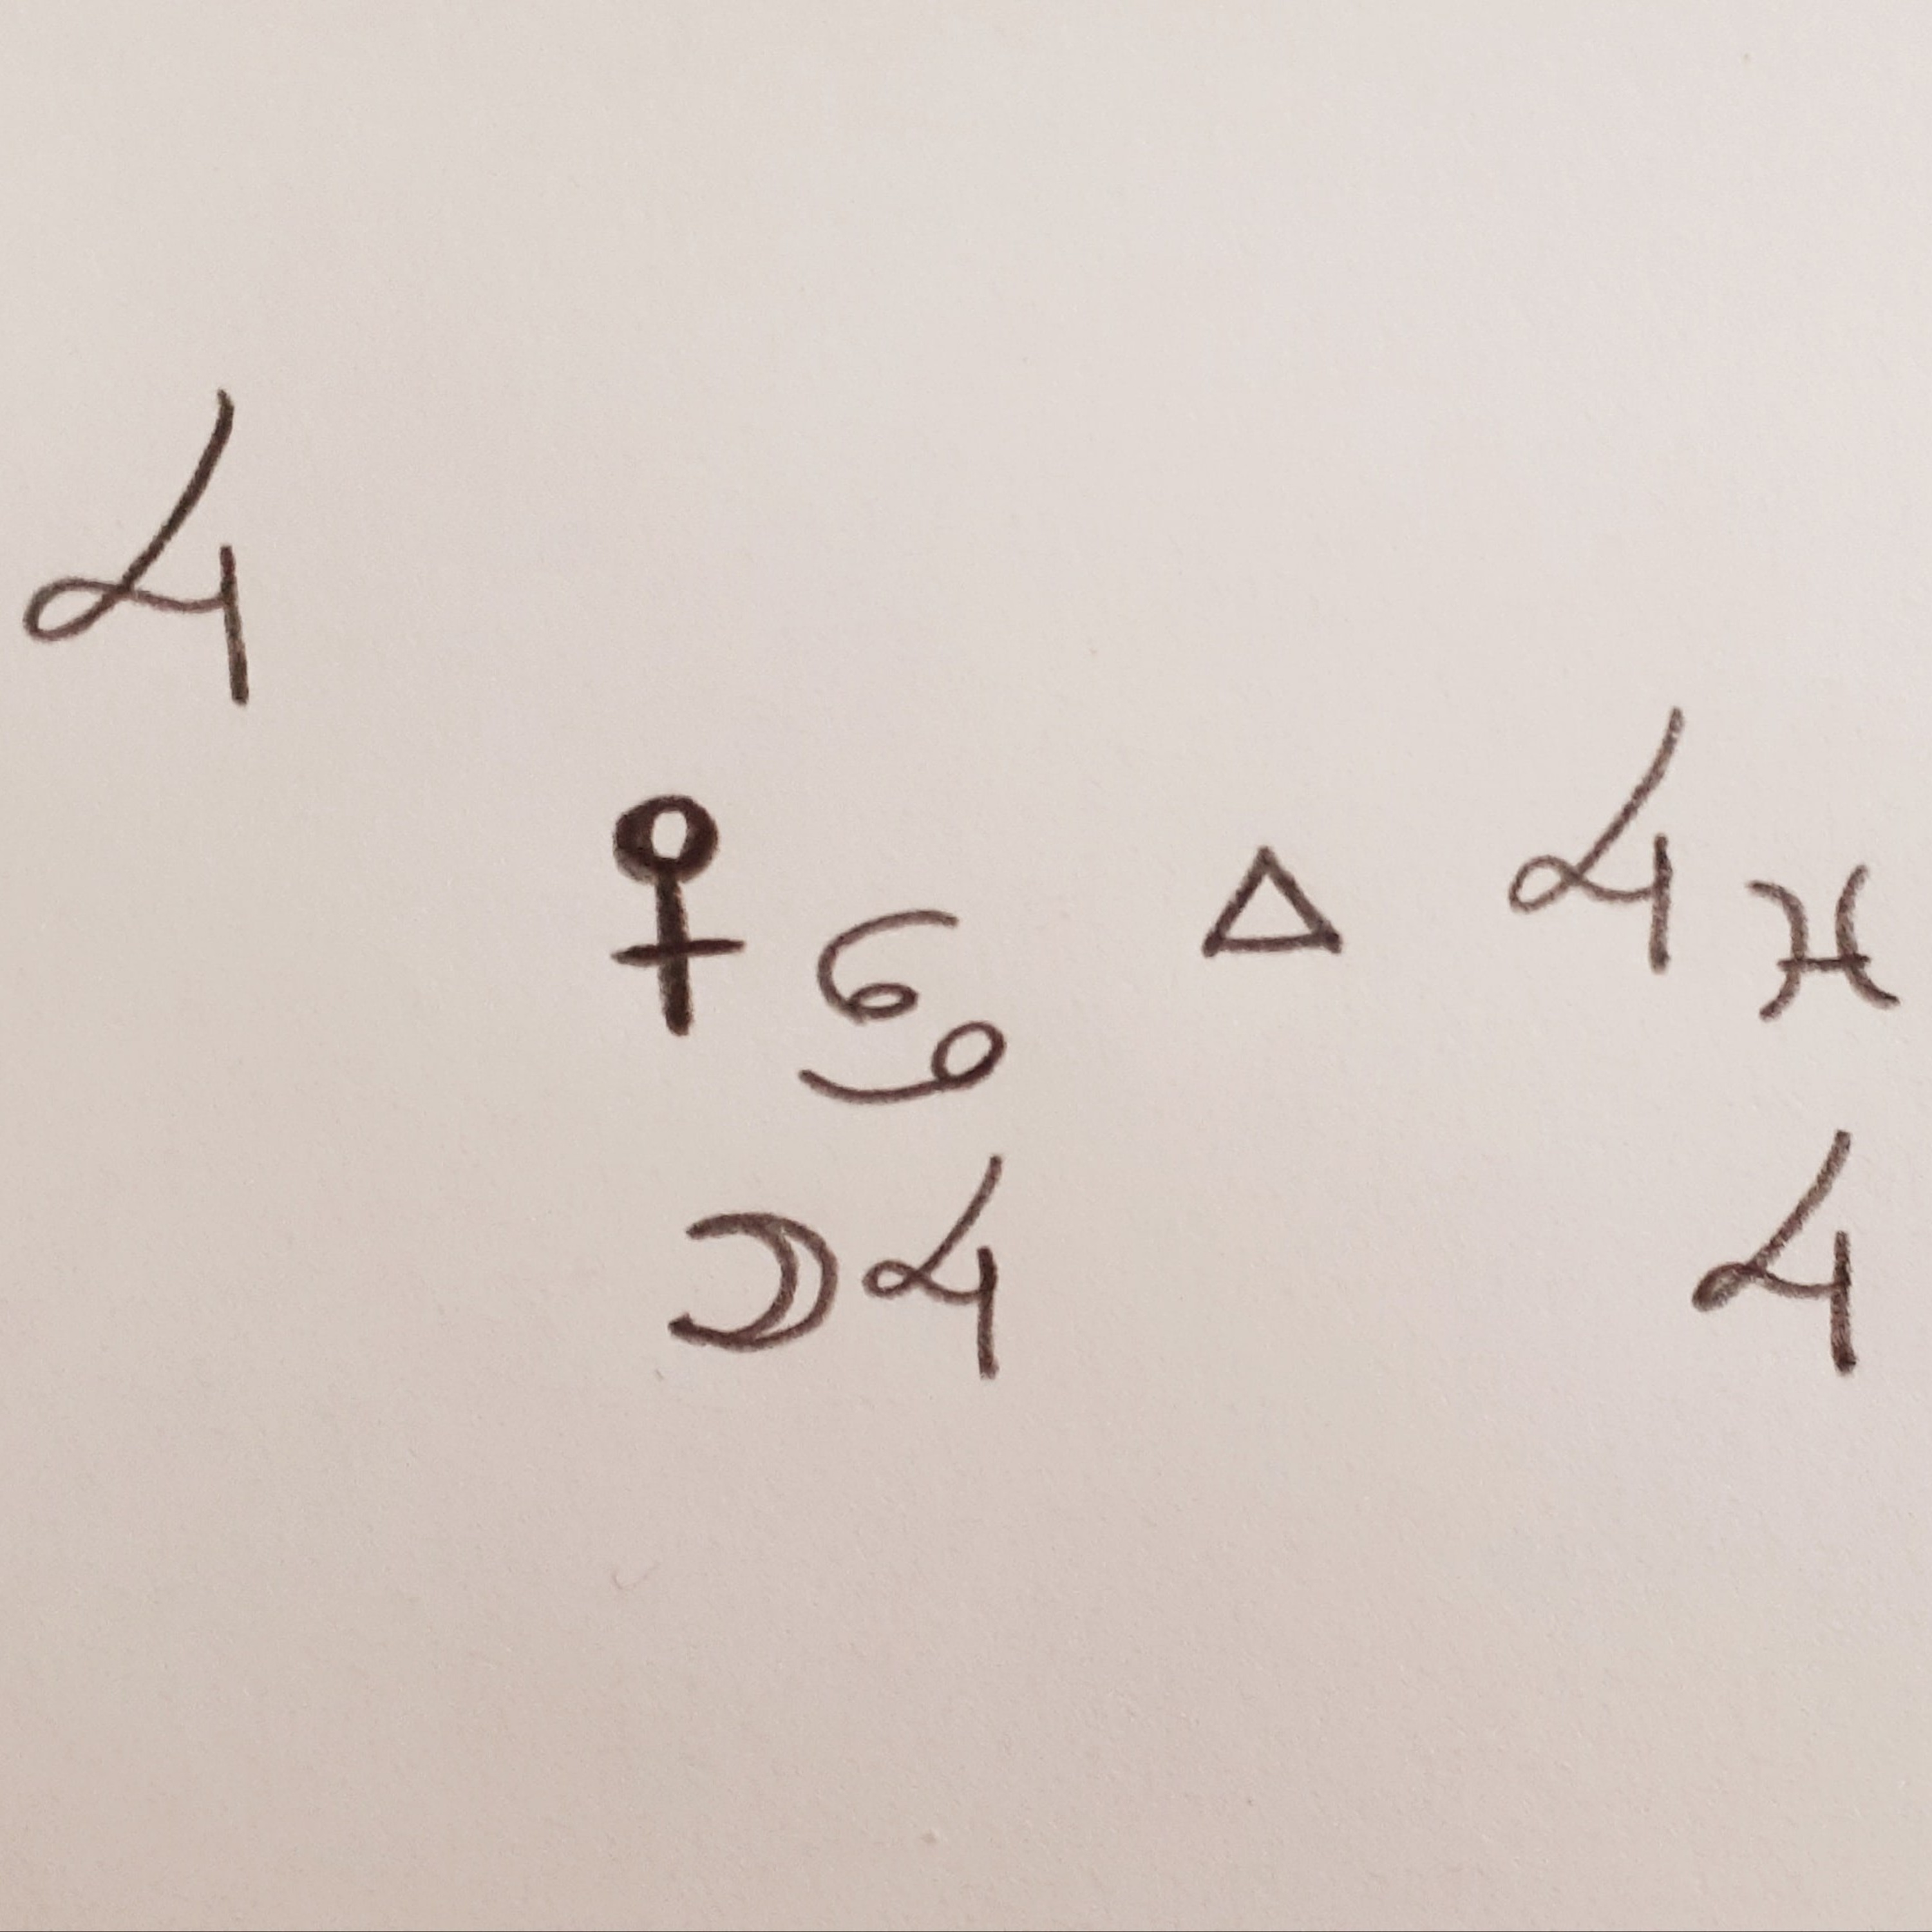 ♃
♀ ♋ △ ♃ ♓
☽ ♃ ♃